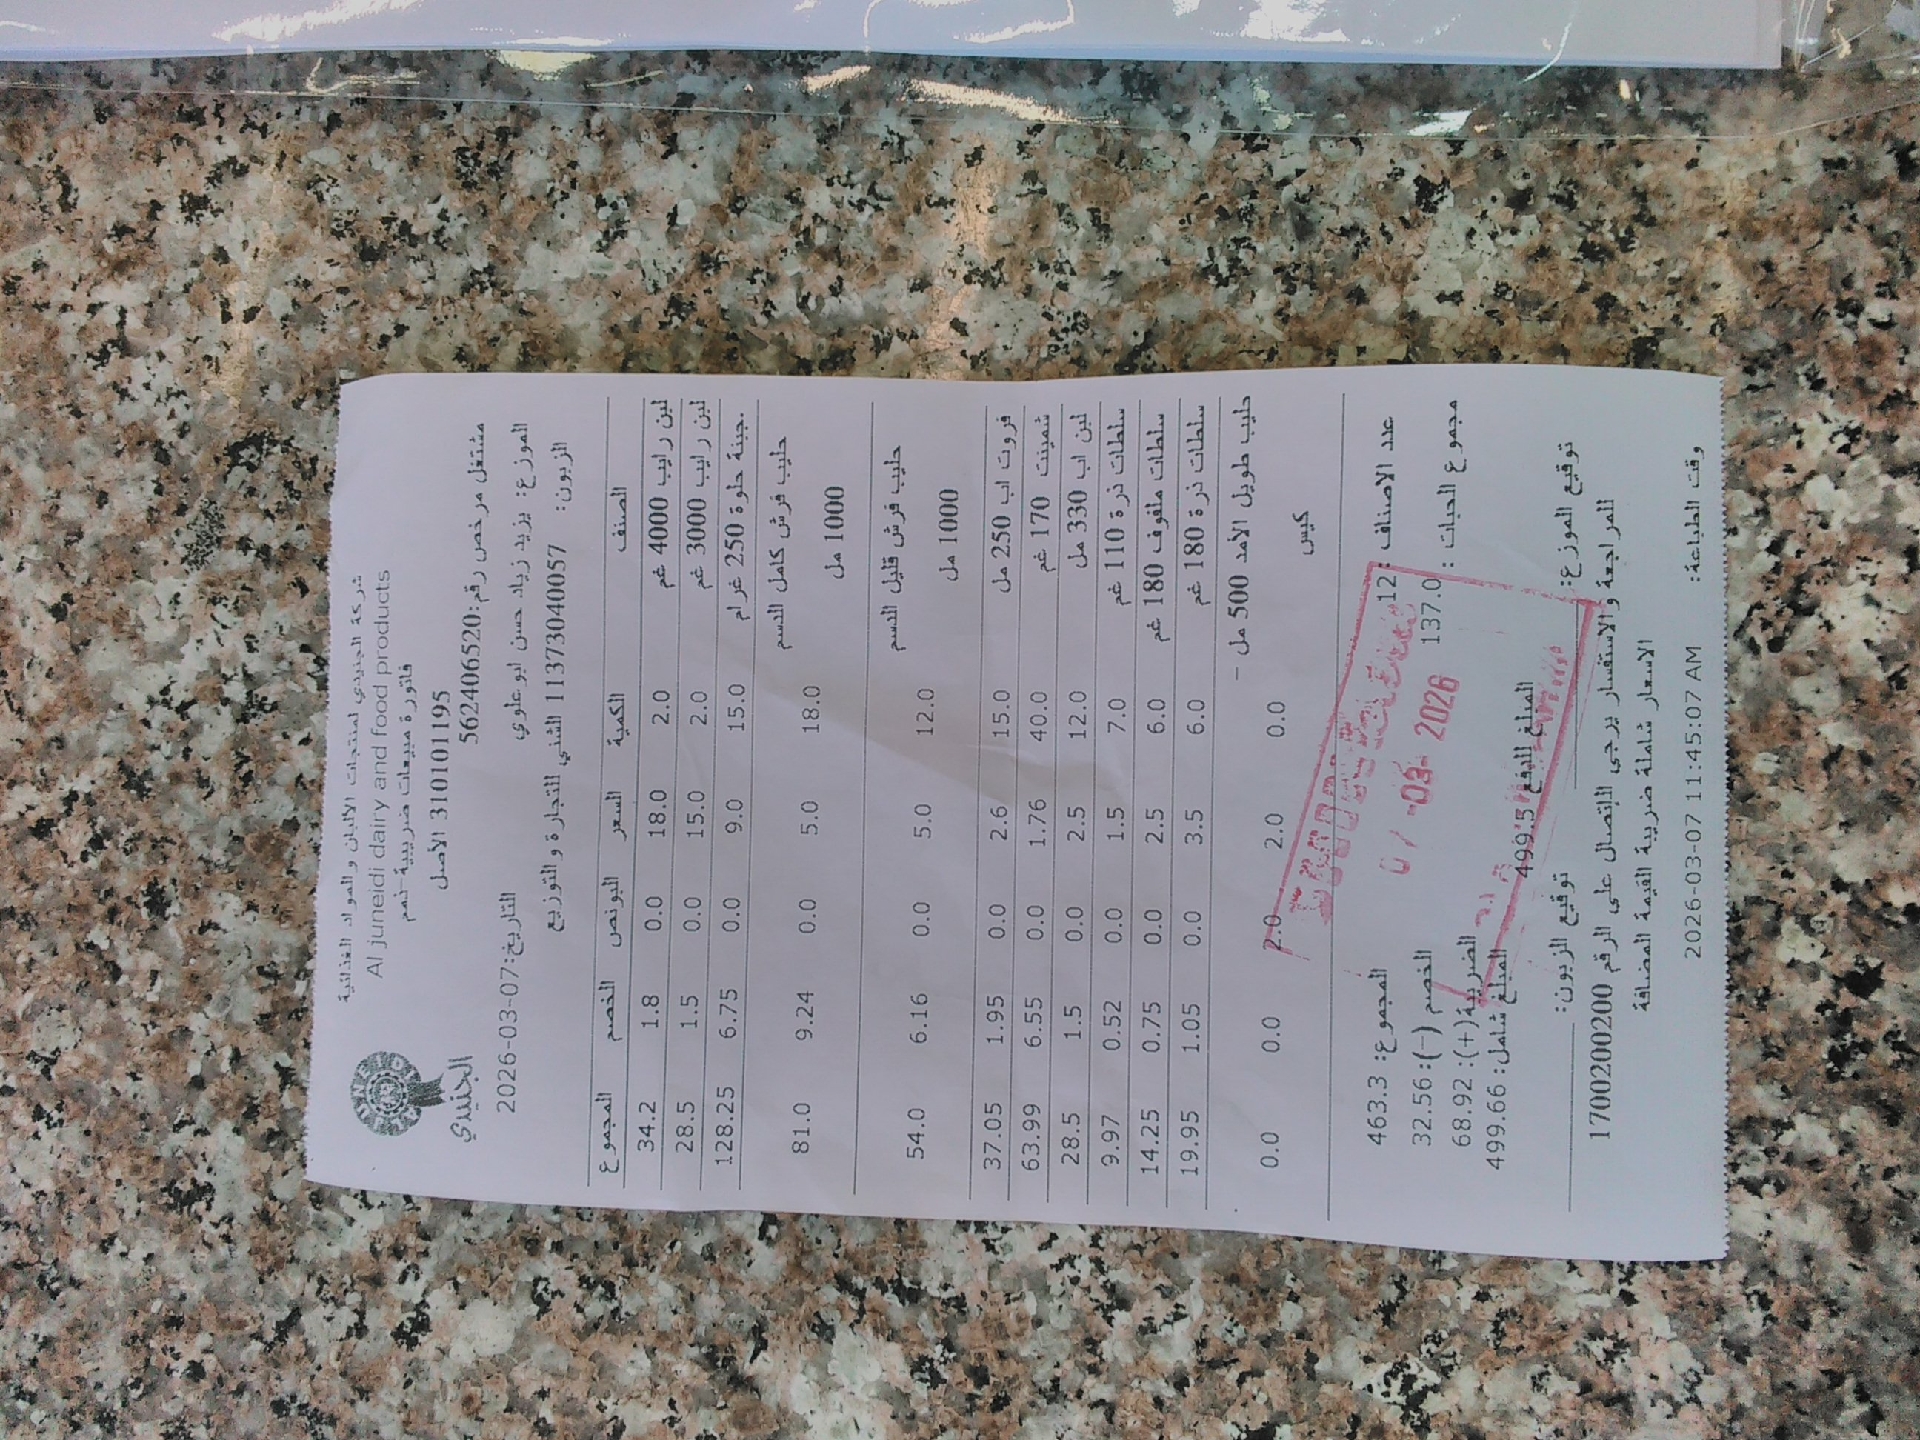 شركة الجنيدي لمنتجات الالبان والمواد الغذائية
Al juneidi dairy and food products
فاتورة مبيعات ضريبية-ذمم
310101195 الأصل
الجنيدي
مشتغل مرخص رقم:562406520
التاريخ:2026-03-07
الموزع: يزيد زياد حسن ابو علوي
الزبون: 11373040057 الشني للتجارة و التوزيع
الصنف الكمية السعر البونص الخصم المجموع
لبن رايب 4000 غم 2.0 18.0 0.0 1.8 34.2
لبن رايب 3000 غم 2.0 15.0 0.0 1.5 28.5
جبنة حلوة 250 غرام 15.0 9.0 0.0 6.75 128.25
حليب فرش كامل الدسم 18.0 5.0 0.0 9.24 81.0
1000 مل
حليب فرش قليل الدسم 12.0 5.0 0.0 6.16 54.0
1000 مل
فروت اب 250 مل 15.0 2.6 0.0 1.95 37.05
شمينت 170 غم 40.0 1.76 0.0 6.55 63.99
لبن اب 330 مل 12.0 2.5 0.0 1.5 28.5
سلطات ذرة 110 غم 7.0 1.5 0.0 0.52 9.97
سلطات ملفوف 180 غم 6.0 2.5 0.0 0.75 14.25
سلطات ذرة 180 غم 6.0 3.5 0.0 1.05 19.95
حليب طويل الأمد 500 مل -
كيس 0.0 2.0 2.0 0.0 0.0
عدد الاصناف : 12 المجموع: 463.3
مجموع الحبات : 137.0 الخصم (-): 32.56
-03- 2026
الضريبة(+): 68.92
المبلغ شامل: 499.66
المبلغ للدفع 499.5
توقيع الموزع: توقيع الزبون:
للمراجعة و الاستفسار يرجى الاتصال على الرقم 1700200200
الاسعار شاملة ضريبة القيمة المضافة
وقت الطباعة: 2026-03-07 11:45:07 AM